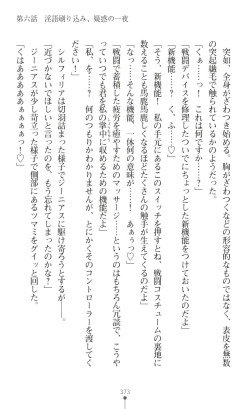 第六話　淫語刷り込み、疑惑の一夜
突如、全身がざわつき始める。ざわざわなどと形容的なものではなく、表皮を無数
の突起繊毛で刷かれるような……。
「これは何ですか……？」
「戦闘デバイスを修理したついでにちょっとした新機能をつけさせてもらった」
「新機能……？　くっ、あっ♡」
「そう、新機能だ！　私の手元にあるこのスイッチを押すとね、戦闘コスチュームの裏地に
馬鹿馬鹿しくなるほどたくさんの触手が生えてくるのだよ」
「そんな機能、一体何の意味が……あぁっ♡」
「戦闘で蓄積した疲労を癒やすためのマッサージ……というのはもちろん冗談で、こうや
っていつでも君を私の掌中に収めるための機能だよ」
「私、を……？　何のつもりかわかりませんが、とにかくそのコントローラーを渡して
ください！」
シルフィリアは切羽詰まった様子でジーニアスに駆け寄ろうとするが――。
「近づかないでほしいと言ったのを、もう忘れてしまったのかな？」
ジーニアスが少し苛立った様子で側部にあるツマミをグイッと回した。
「くはああああああぁぁぁっ♡」
373